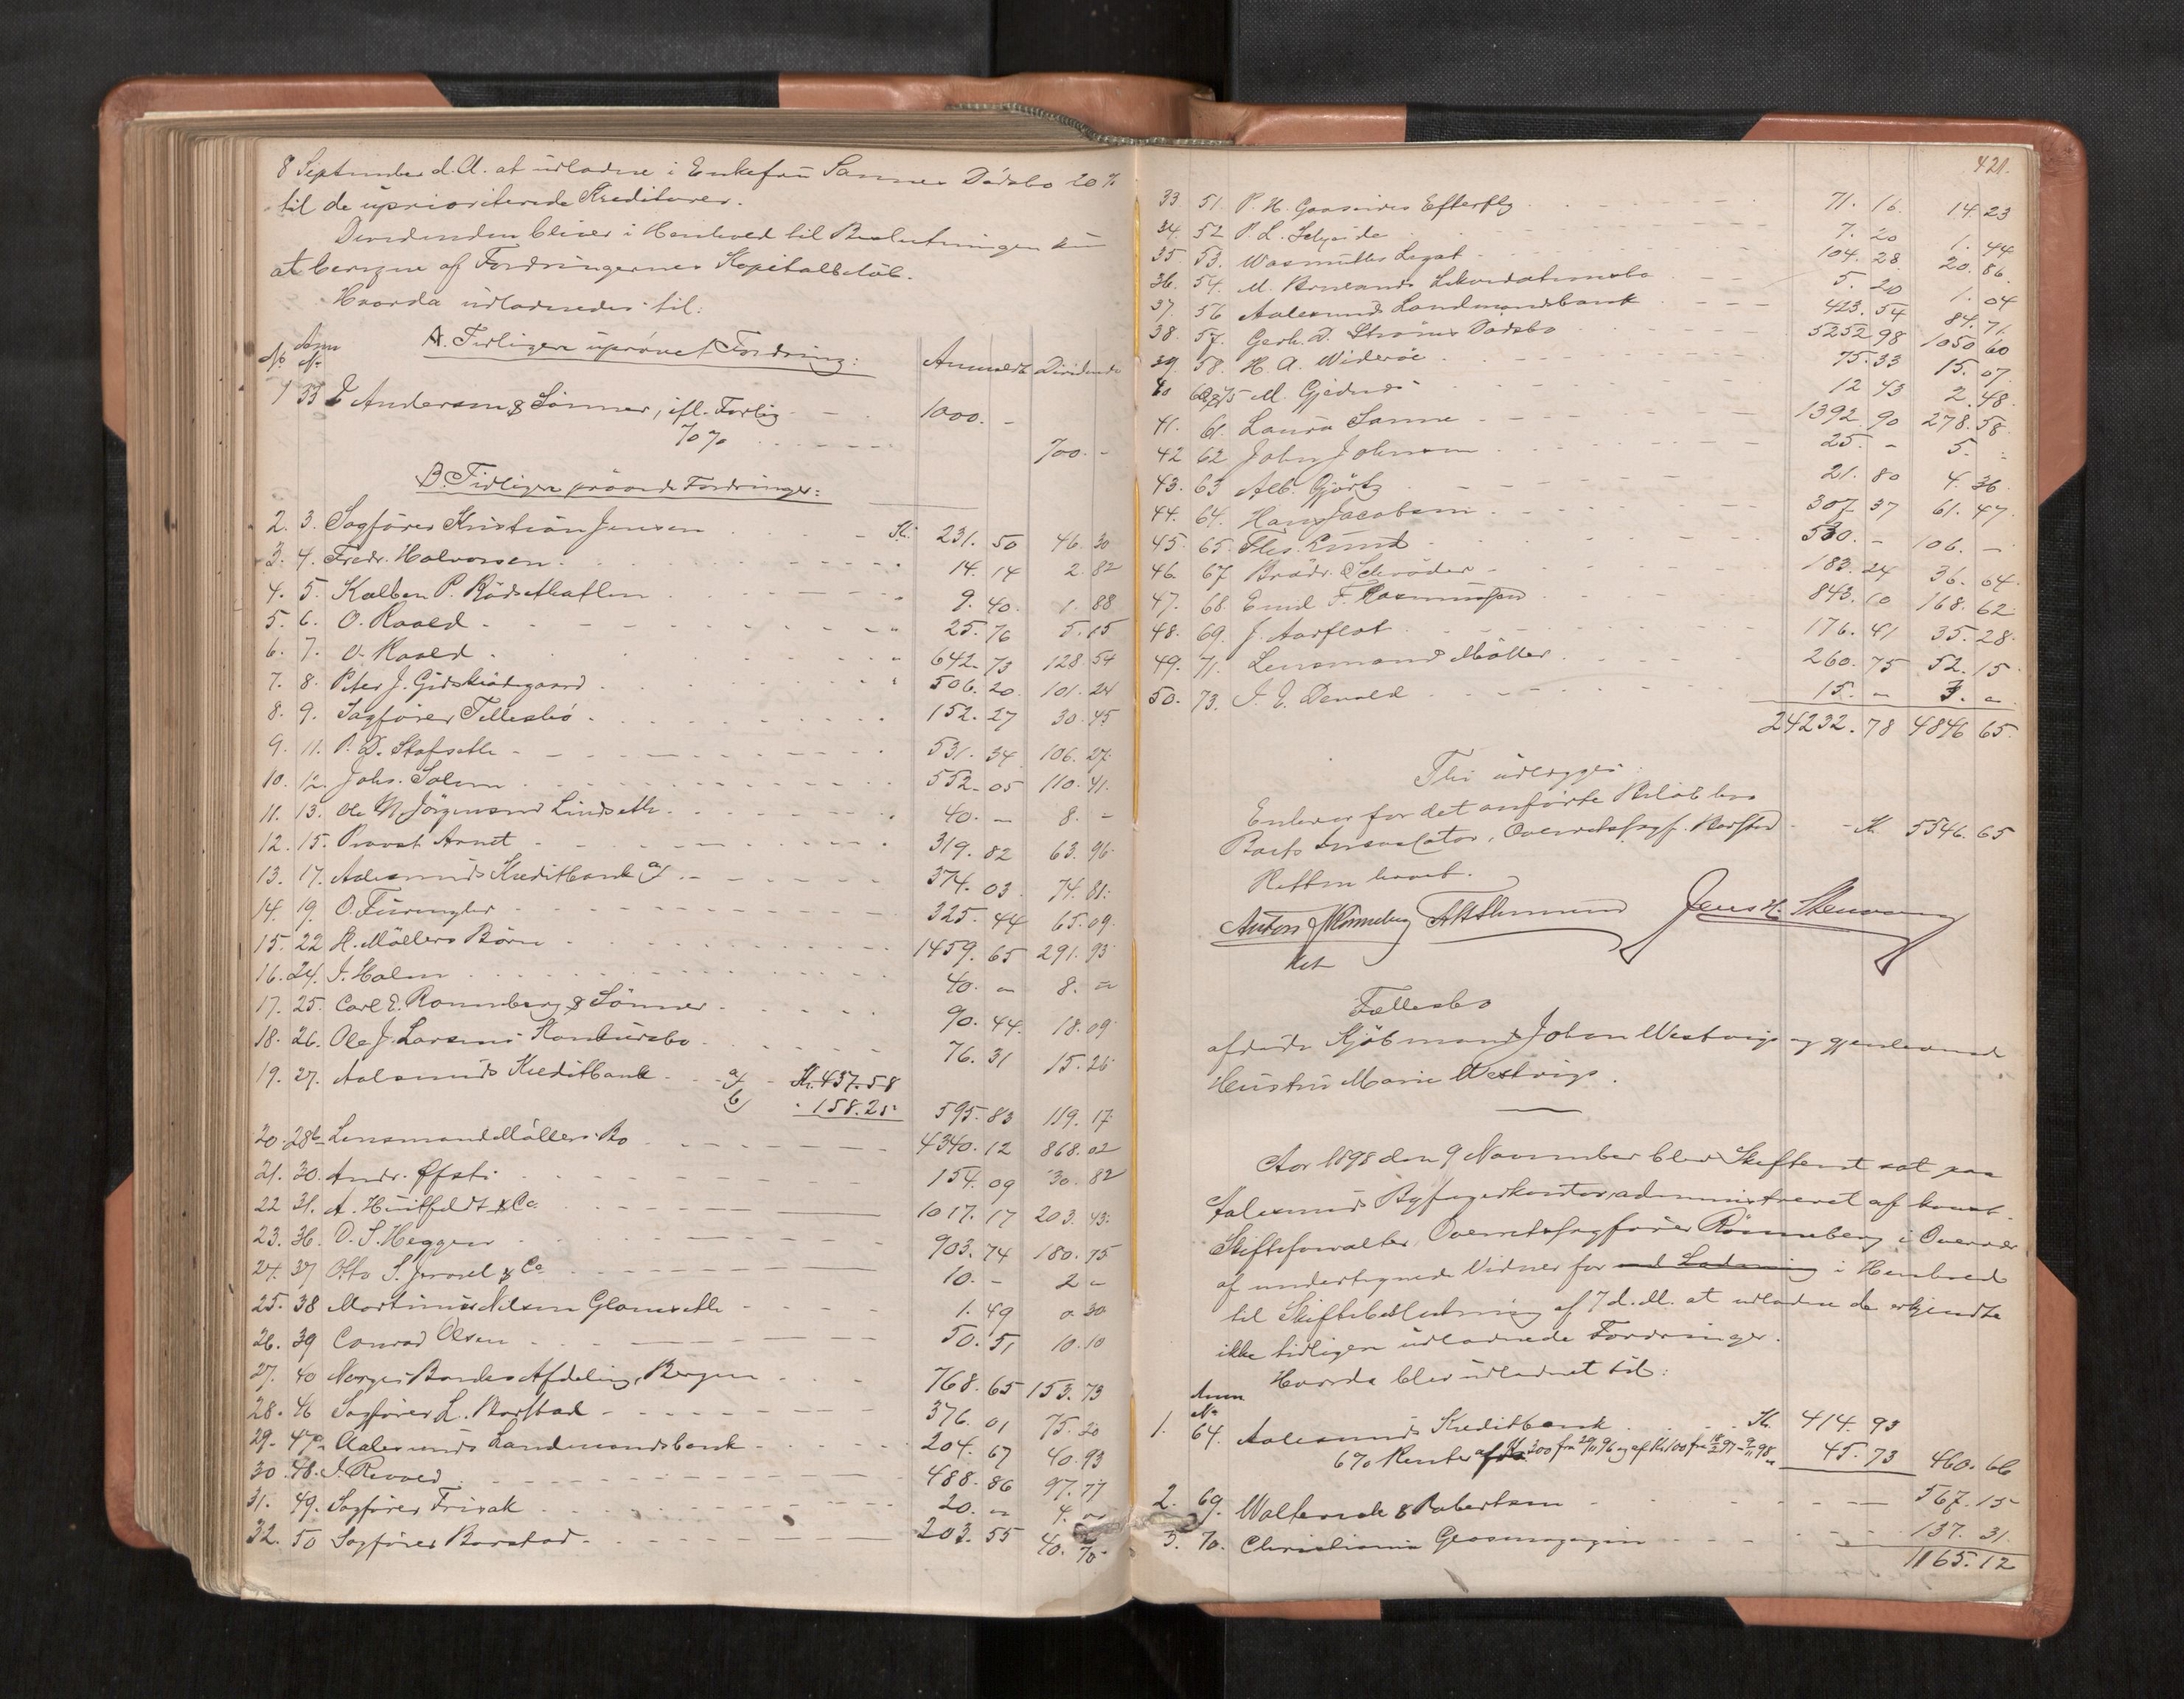 8 September d. A. at udlodne i Enkefru Sannes Dödsbo 20 %
til de uprioriterede Kreditorer.
Dividenden bliver i Henhold til Beslutningen kun
at beregne af Fordringernes Kapitalbeløb.
Hvorda udlodnedes til:
No Anm No A. Tidligere uprövet Fordring: Anmeldt Dividende
1 33 E Andersen & Sönner, ifl. Forlig 1000. -
70 % 700. -
B. Tidligere prövede Fordringer:
2. 3. Sagförer Kristian Jensen Kr. 231. 50 46. 30
3. 4. Fredr. Halvorsen 14. 14 2. 82
4. 5. Kolben P. Rödsethatlen 9. 40. 1. 88
5. 6. O. Roald 25. 76 5. 15
6. 7. O. Roald 642. 73 128. 54
7. 8. Peter J. Gidskeödegaard 506. 20. 101. 24
8. 9. Sagförer Tellesbö 152. 27 30. 45
9. 11. P. D. Stafseth 531. 34 106. 27.
10. 12. Johs. Solem 552. 05 110. 41.
11. 13. Ole M. Jörgensens Lindseth 40. - 8. -
12. 15. Provst Arnet 319. 82 63. 96
13. 17. Aalesunds Kreditbank a) 374. 03. 74. 81.
14. 19. O. 325. 44 65. 09.
15. 22 H. Möllers Börn 1459. 65 291. 93
16. 24. J. Holm 40. - 8. -
17. 25. Carl E. Rönneberg & Sönner 90. 44. 18. 09
18. 26. Ole J. Larsens Konkursbo 76. 31 15. 26
19. 27. Aalesunds Kreditbank a) Kr. 437.58
b) 158.25 595. 83 119. 17
20. 28b Lensmand Möllers Bo 4340. 12 868. 02
21. 30. Andr. Öfsti 154. 09 30. 82
22 31. A. Huitfeldt & Co. 1017. 17 203. 43.
23. 36. O. S. Heggen 903. 74 180. 75
24. 37 Otto S. & Co 10. - 2 -
25. 38 Martinus Nilsen Glomseth 1. 49 0 30
26. 39 Conrad Olsen 50. 51 10. 10
27. 40 Norges Banks Afdeling, Bergen 768. 65 153. 73
28. 46 Sagförer L. Korstad 376. 01 75. 20
29. 47a Aalesunds Landmandsbank 204. 67 40. 93
30. 48. J. Revold 488. 86 97. 77
31. 49. Sagförer Frisak 20. - 4. -
32. 50 Sagförer Borstad 203. 55 40. 70
421.
33 51. P. H. Gaasnes Efterflg 71. 16. 14. 23
34. 52 P. L. 7. 20 1. 44
35. 53. Wasmuths Legat 104. 28 20. 86
36. 54. M. Likvidationsbo 5. 20 1. 04
37. 56 Aalesunds Landmandsbank 423. 54 84. 71.
38. 57. Gerh. D. Ströms Dödsbo 5252 98 1050 60
39. 58. H. A. Wideröe 75. 33 15. 07
40 60 & 75 M. Gjednes 12 43 2. 48.
41. 61. Laura Sanne 1392. 90 278. 58.
42 62. John Johnsen 25. - 5. -
43. 63 Alb. Gjörtz 21. 80 4. 36
44. 64. Hans Jacobsen 307. 37 61. 47.
45. 65. Thes. Lund 530. - 106. -
46. 67. Brödr. Schröder 183. 24 36. 64.
47. 68. Emil F. Rasmussen 843. 10 168. 62
48. 69. J. Aarflot 176. 41 35. 28.
49. 71. Lensmand Möller 260. 75 52. 15
50. 73. J. E. Devold 15. - 3. -
24232. 78 4846 65.
Thi udlægges:
Enhver for det anförte Belöb hos
Boets Incassator, Overretssagf. Korstad Kr. 5546. 65
Retten hævet.
Anton Rönneberg Jens H.
kst
Fællesbo
afdöde Kjöbmand Johan Westvigs og gjenlevende
Hustru Marie Westvigs.
Aar 1898 den 9 November blev Skifteret sat paa
Aalesunds Byfogedkontor, administreret af konst.
Skifteforvalter, Overretssagförer Rönneberg i Overvær
af undertegnede Vidner for i Henhold
til Skiftebeslutning af 7 d. M. at udlodne de erkjendte
ikke tidligere udlodnede Fordringer.
Hvorda blev udlodnet til:
Anm
No
1. 64. Aalesunds Kreditbank Kr. 414. 93
6 % Renter af Kr. 300 fra 29/10 96 og af Kr. 100 fra 18/2 97 - 9/11 98 45. 73 460. 66
2. 69. Walterede & Robertsen 567. 15
3. 70. Christiania Glasmagazin 137. 31.
1165. 12